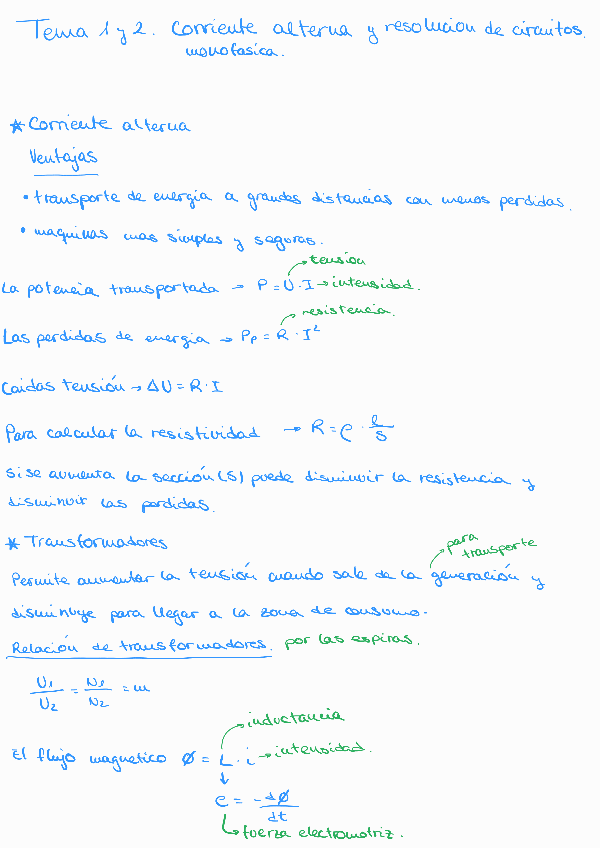 Tema 1 y 2. Corriente alterna y resolucion de circuitos.
monofasica.
* Corriente alterna
Ventajas
• transporte de energia a grandes distancias con menos perdidas.
• maquinas mas simples y seguras.
tensión
La potencia transportada → P = U · I → intensidad.
resistencia.
Las perdidas de energia → Pp = R · I²
Caidas tensión → ΔU = R · I
Para calcular la resistividad → R = ρ · l/s
Si se aumenta la sección (s) puede disminuir la resistencia y
disminuir las perdidas.
* Transformadores
para
transporte
Permite aumentar la tensión cuando sale de la generación y
disminuye para llegar a la zona de consumo.
Relación de transformadores. por las espiras.
U1/U2 = N1/N2 = m
inductancia
El flujo magnetico Ø = L · i → intensidad.
e = -dØ/dt
fuerza electromotriz.